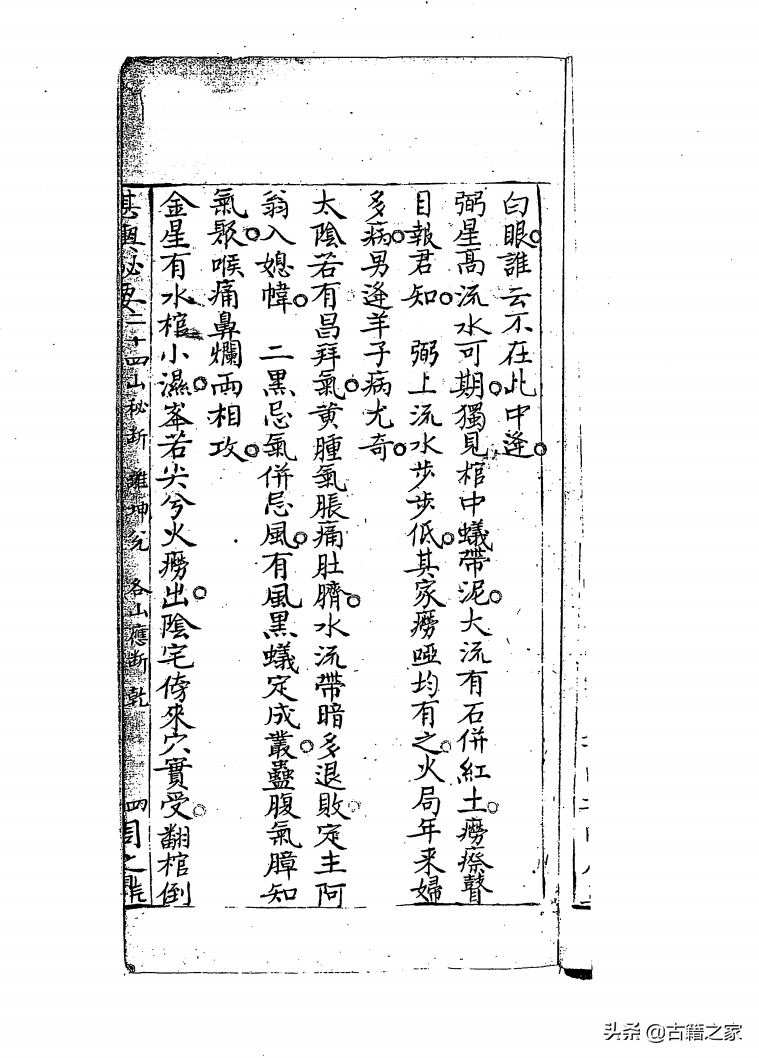 白眼誰云不在此中逢
弼星高流水可期獨見棺中蟻帶泥大流有石併紅土癆瘵瞽
目報君知　弼上流水步步低其家癆啞均有之火局年来婦
多病男逢羊子病尤奇
太陰若有昌拜氣黄腫氣脹痛肚臍水流帶暗多退敗定主阿
翁入媳幃　二黑忌氣併忌風有風黑蟻定成叢蠱腹氣臌知
氣聚喉痛鼻爛兩相攻
金星有水棺小濕峯若尖兮火癆出陰宅傍來穴實受翻棺倒
輿秘要二十四山秘斷　離坤兑　各山應斷乾　四
头条 @古籍之家